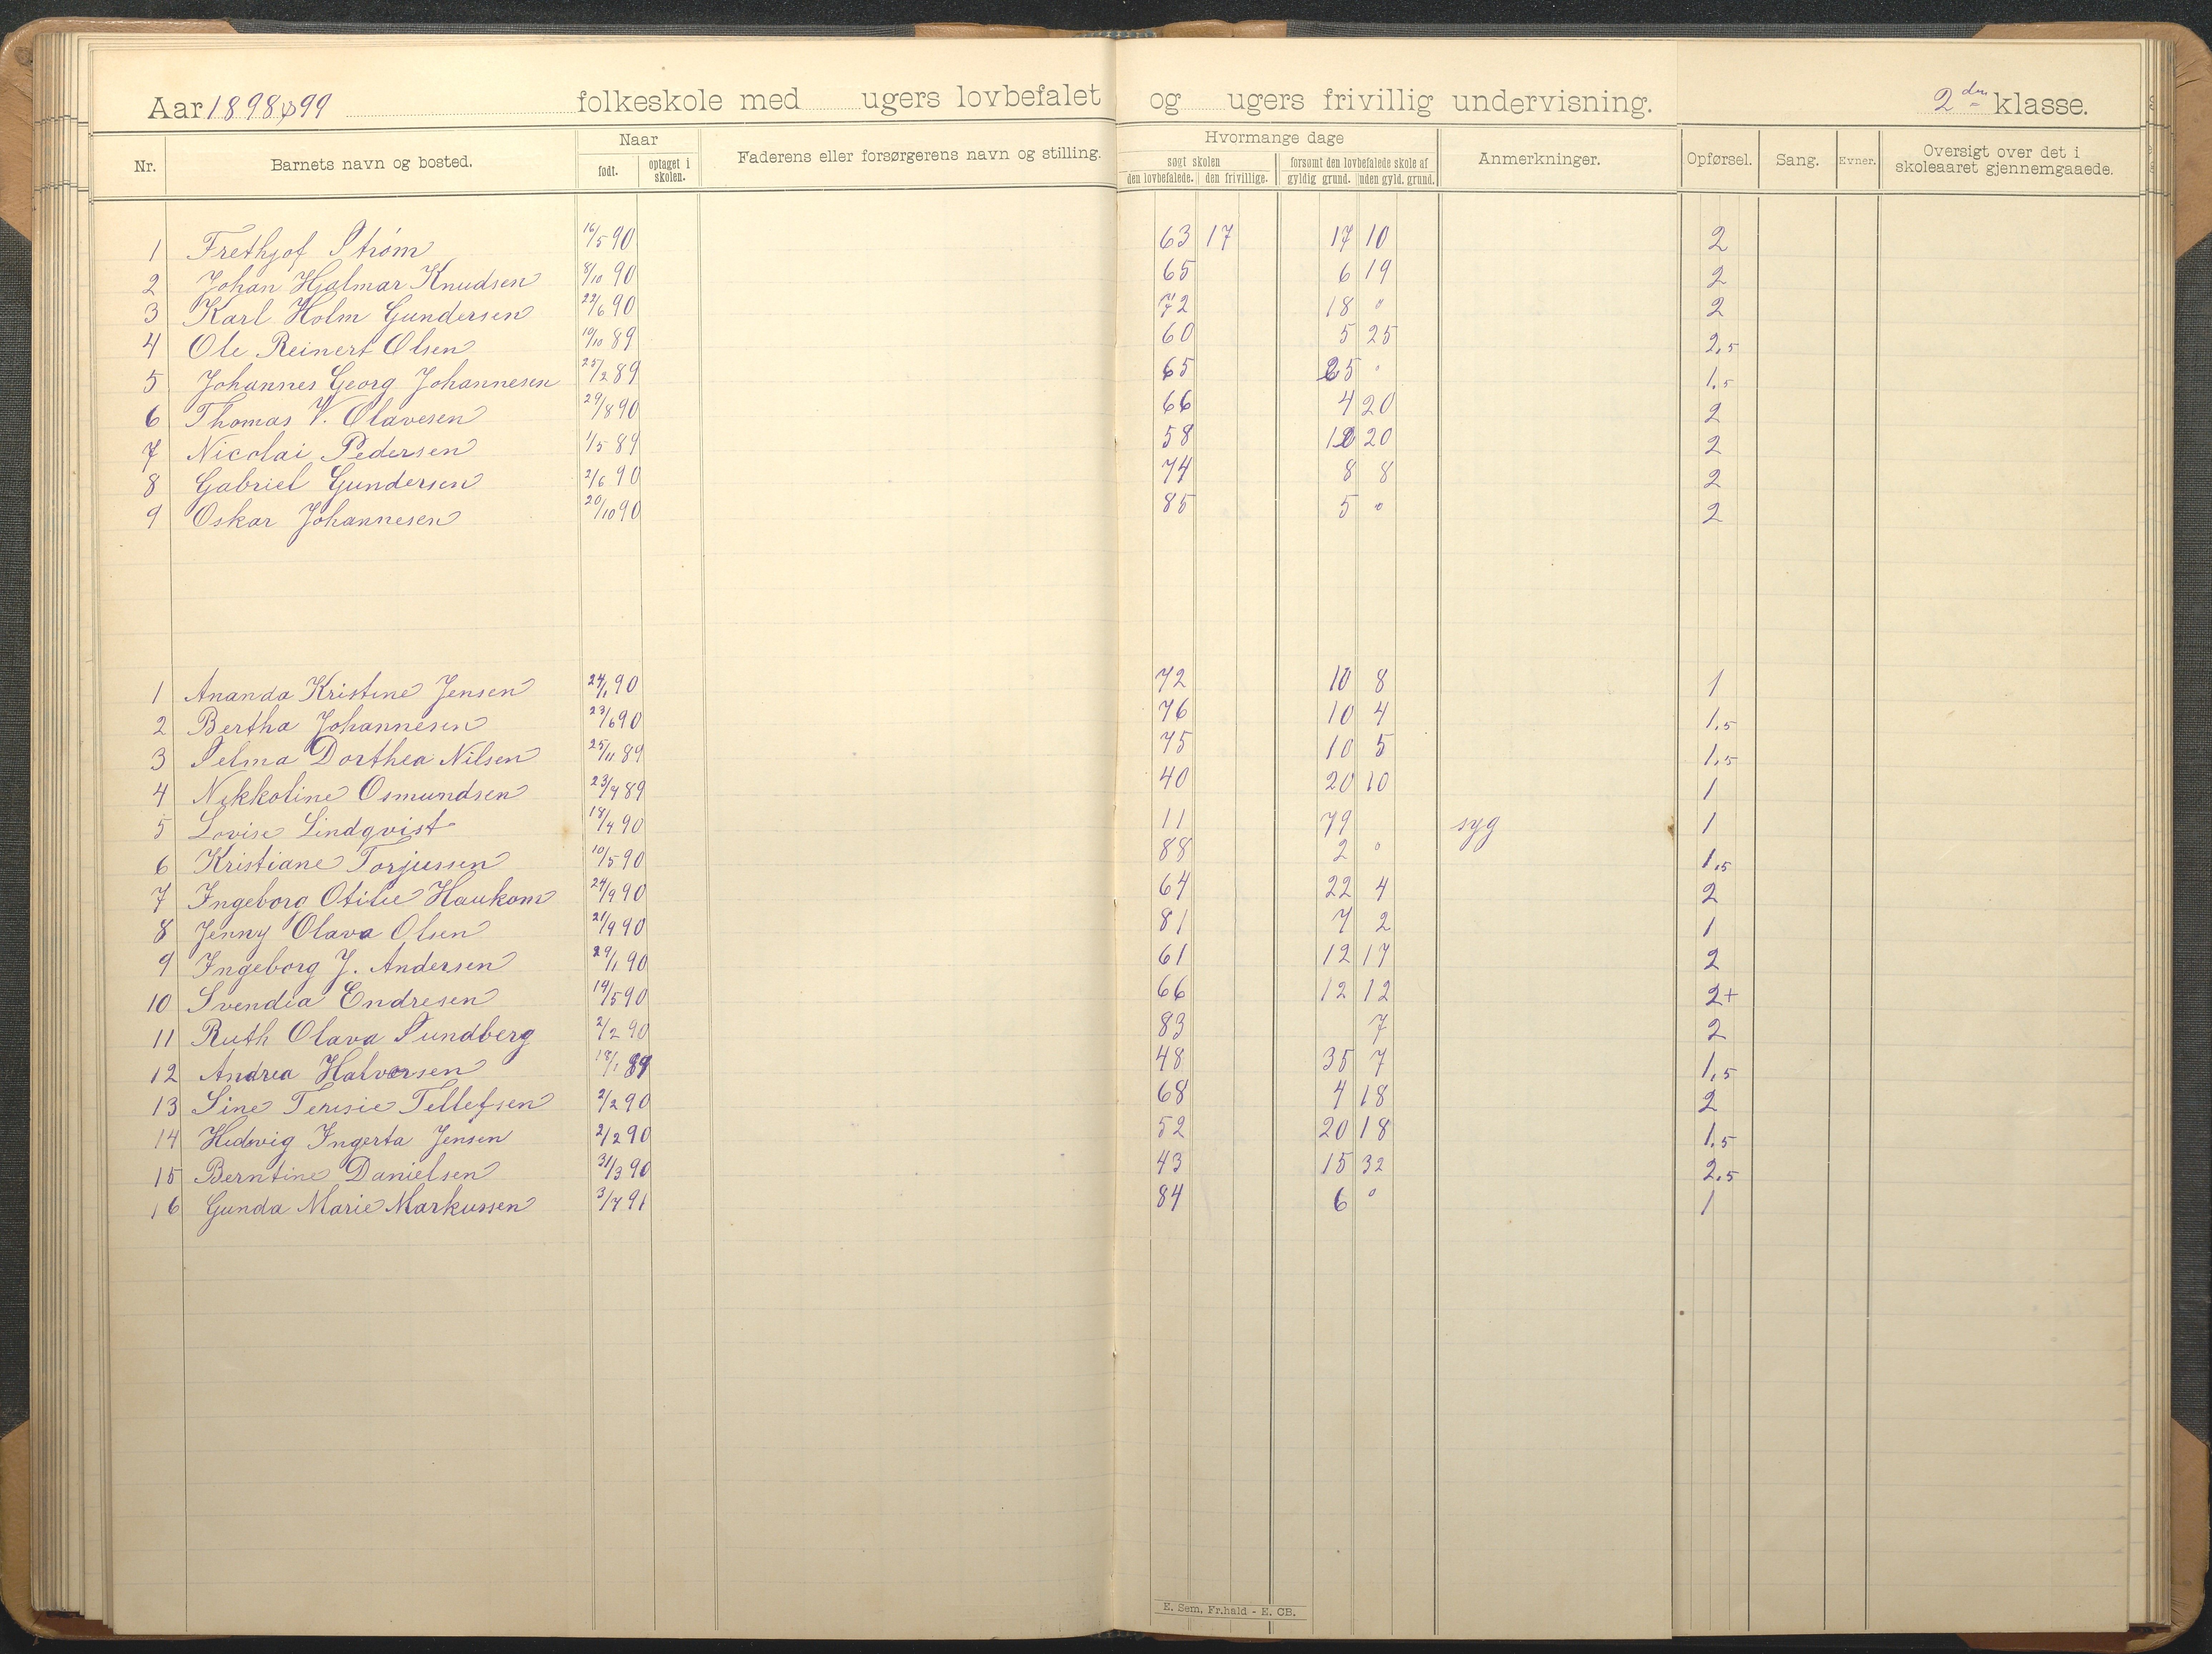 Aar 1898/99 folkeskole med ugers lovbefalet og ugers frivillig undervisning. 2den klasse.
Nr. Barnets navn og bosted. Naar født. optaget i skolen. Faderens eller forsørgerens navn og stilling. Hvormange dage søgt skolen den lovbefalede. den frivillige. forsømt den lovbefalede skole af gyldig grund. uden gyld. grund. Anmerkninger. Opførsel. Sang. Evner. Oversigt over det i skoleaaret gjennemgaaede.
1 Frethjof Strøm 16/5 90 63 17 17 10 2
2 Johan Hjalmar Knudsen 8/10 90 65 6 19 2
3 Karl Holm Gundersen 22/6 90 72 18 " 2
4 Ole Reinert Olsen 10/10 89 60 5 25 2,5
5 Johannes Georg Johannesen 25/2 89 65 25 " 1,5
6 Thomas V. Olavesen 29/8 90 66 4 20 2
7 Nicolai Pedersen 1/5 89 58 12 20 2
8 Gabriel Gundersen 2/6 90 74 8 8 2
9 Oskar Johannesen 20/10 90 85 5 " 2
1 Ananda Kristine Jensen 24/1 90 72 10 8 1
2 Bertha Johannesen 23/6 90 76 10 4 1,5
3 Selma Dorthea Nilsen 25/11 89 75 10 5 1,5
4 Nikkoline Osmundsen 23/4 89 40 20 10 1
5 Lovise Lindqvist 18/4 90 11 79 syg 1
6 Kristiane Torjussen 10/5 90 88 2 " 1,5
7 Ingeborg Otilie Haukom 24/9 90 64 22 4 2
8 Jenny Olava Olsen 21/9 90 81 7 2 1
9 Ingeborg J. Andersen 29/1 90 61 12 17 2
10 Svendia Endresen 19/5 90 66 12 12 2+
11 Ruth Olava Sundberg 2/2 90 83 7 2
12 Andrea Halvorsen 18/1 89 48 35 7 1,5
13 Sine Teresie Tellefsen 2/2 90 68 4 18 2
14 Hedvig Ingerta Jensen 2/2 90 52 20 18 1,5
15 Berntine Danielsen 31/3 90 43 15 32 2,5
16 Gunda Marie Markussen 3/7 91 84 6 " 1
E. Sem, Fr.hald - E. CB.